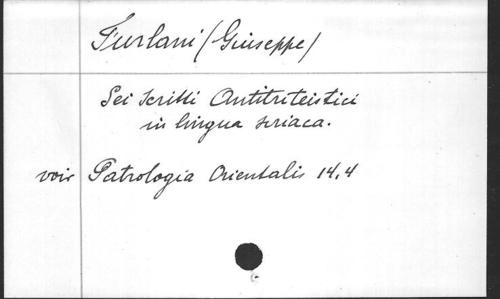 Furlani (Giuseppe)
Sei scritti Antitriteistici
in lingua siriaca.
voir Patrologia Orientalis 14,4